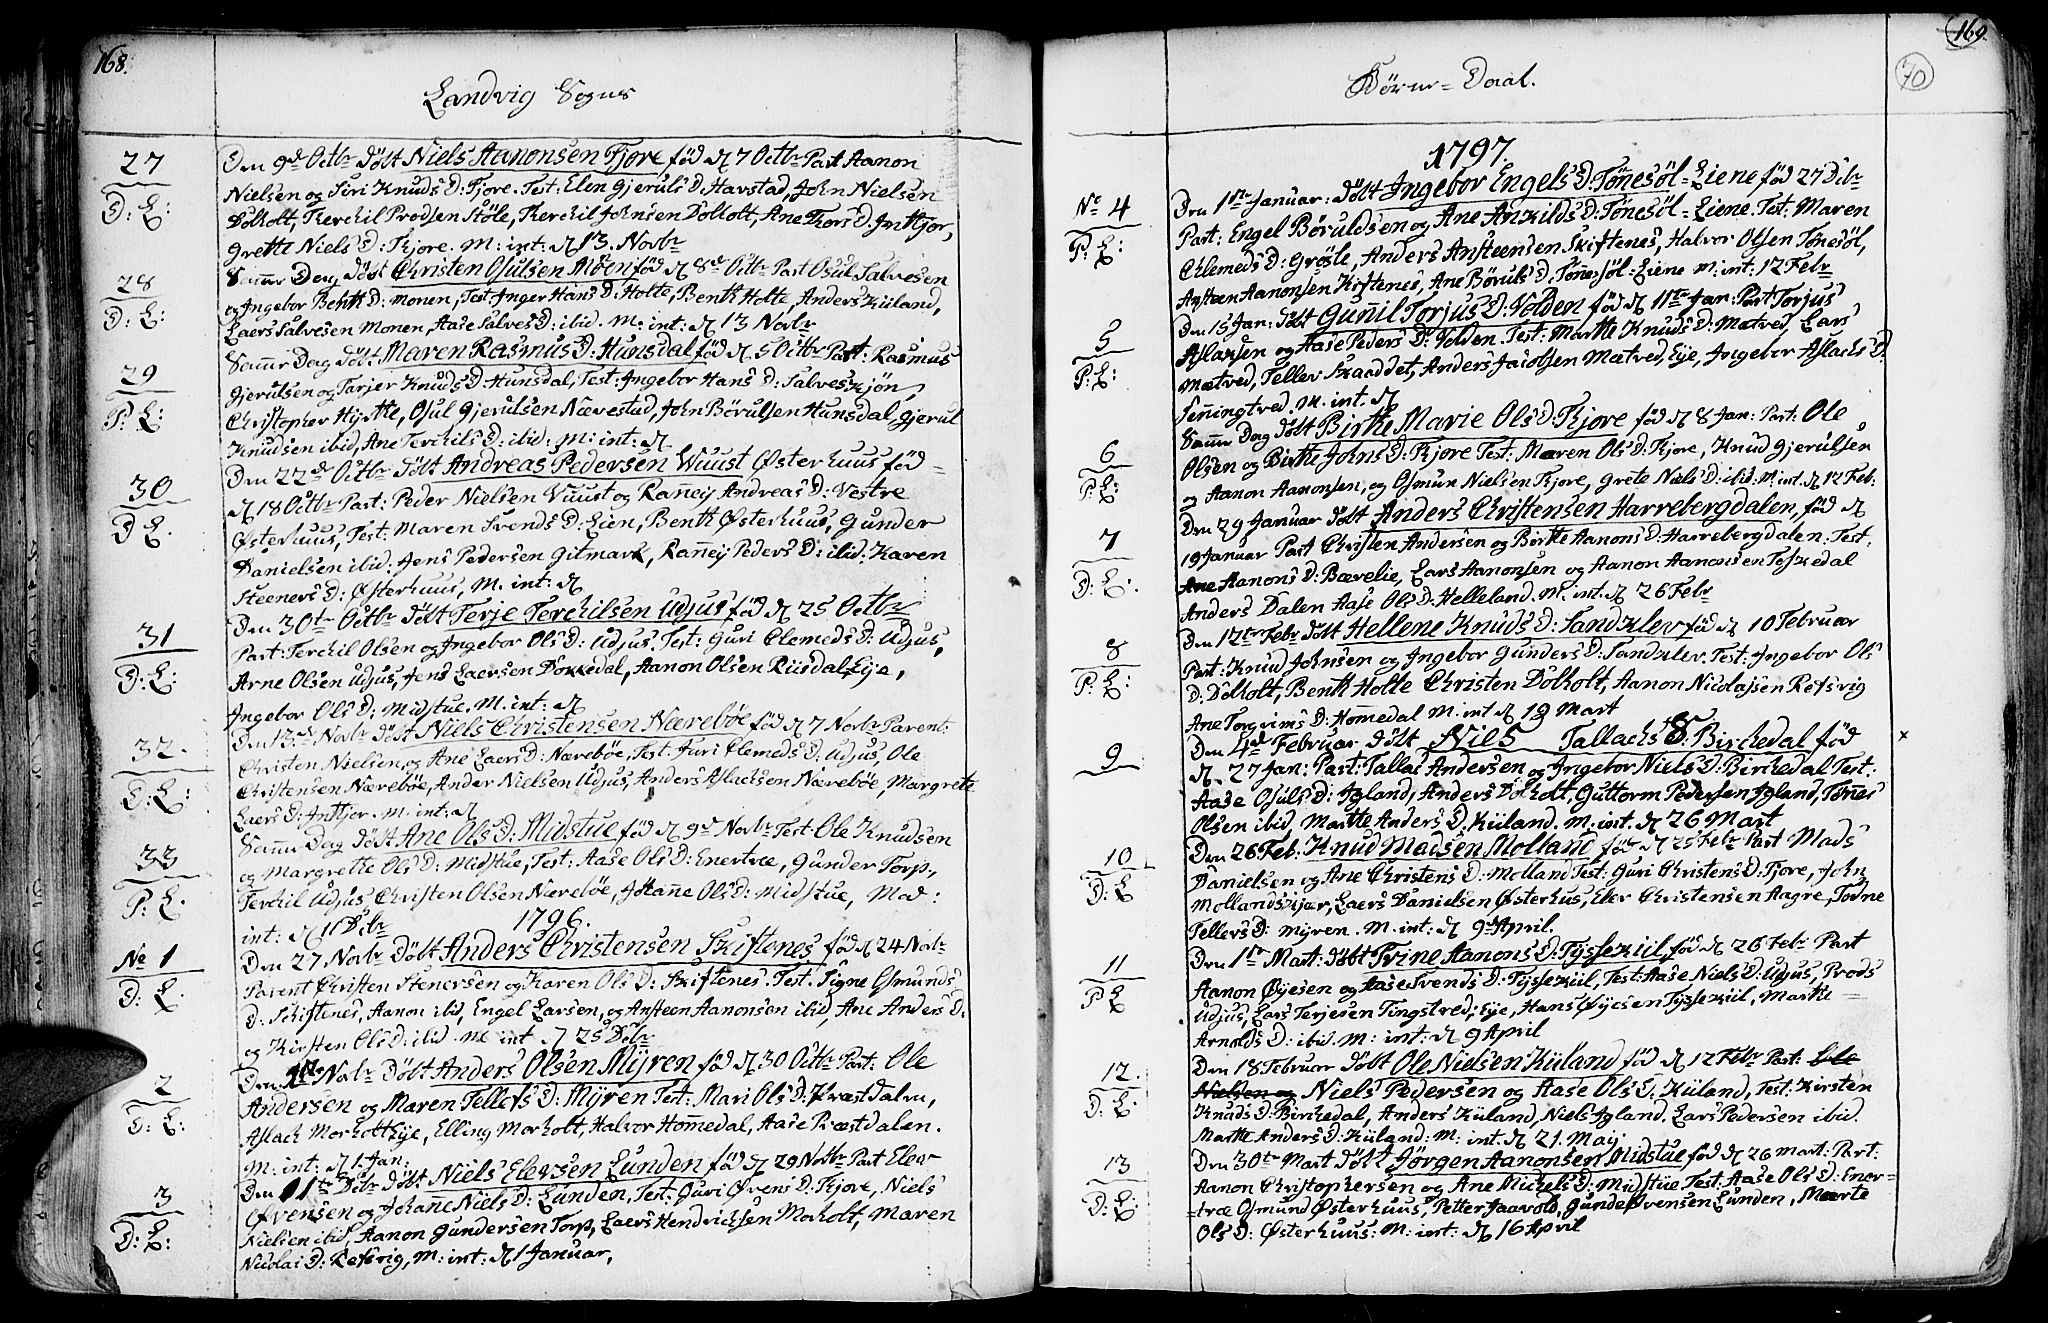 168.
Landvig Sogns
27
D: L:
Den 9de Octbr Døbt Niels Aanonsen Fjore fød d. 7 Octbr Part Aanon
Nielsen og Siri Knuds D: Fjore. Test: Elen Gjeruls D: Havstad, John Nielsen
Dolholt, Terchil Prodsen Støle, Terchil Johnsen Dolholt, Ane Thors D: Inthjor,
Grethe Niels D: Fjore. M: int: d. 13. Novbr
28
D: L:
Samme Dag Døbt Christen Osulsen Moen fød d. 8de Octbr Part Osul Salvesen
og Ingebor Benth D: Monen, Test Inger Hans D: Holte, Benth Holte, Anders Kiiland,
Laers Salvesen Monen, Aase Salves D: ibid. M: int: d. 13 Novbr
29
P: L:
Samme Dag Døbt. Maren Rasmus D: Hunsdal fød d. 5 Octbr Part: Rasmus
Gjerulsen og Tarjer Knuds D: Hunsdal, Test: Ingebor Hans D: Salveskjøn,
Christopher Hyrthe, Osul Gjerulsen Nævestad, John Børulsen Hunsdal, Gjerul
Knudsen ibid, Ane Terchils D: ibid: M: int: d.
30
D: L:
Den 22de Octbr Døbt Andreas Pedersen Wuust Østerhuus fød
d. 18 Octbr Part: Peder Nielsen Vuust og Ranney Andreas D: Vestre
Østerhuus, Test: Maren Svends D: Lien, Benth Østerhuus, Gunder
Danielsen ibid: Jens Pedersen Gitmark, Ranney Peders D: ibid: Karen
Steeners D: Østerhuus, M. int: d.
31
D: L:
Den 30te Octbr Døbt Terje Terchilsen Udjus fød d. 25 Octbr
Part: Terchil Olsen og Ingebor Ols D: Udjus. Test: Guri Clemeds D: Udjus,
Arne Olsen Udjus, Jens Laersen Dokkedal, Aanon Olsen Riisdal, Eje,
Ingebor Ols D: Midstue. M. int: d.
32.
D: L:
Den 13de Novbr Døbt Niels Christensen Nærebøe fød d. 7 Novbr Parent:
Christen Nielsen, og Ane Laers D: Nærebøe, Test: Juri Clemeds D: Udjus, Ole
Christensen Nærebøe, Ander Nielsen Udjus, Anders Aslachsen Nærebøe, Margrete
Laers D: Inthjor. M: int: d.
33
P: L.
Samme Dag Døbt Ane Ols D: Midstue fød d. 9de Novbr Test: Ole Knudsen
og Margrethe Ols D: Midstue, Test: Aase Ols D: Enertræ, Gunder Torp,
Terchil Udjus, Christen Olsen Nærebøe, Johanne Ols D: Midstue, Mod:
int: d. 11 Dcbr
1796.
No 1
D: L.
Den 27 Novbr Døbt Anders Christensen Skiftenes fød d. 24 Novbr
Parent Christen Stenersen og Karen Ols D: Skiftenes. Test. Signe Osmunds
D: Skiftenes, Aanon ibid, Engel Larsen, og Ansteen Aanonsen ibid, Ane Anders D:
og Kirsten Ols D: ibid. M: int d. 25 Dcbr
2
D: L:
Den 1te Novbr Døbt Anders Olsen Myren fød d. 30 Octbr Part: Ole
Andersen og Maren Tellefs D: Myren Test: Mari Ols D: Præstdalen,
Aslach Morholt Eje, Elling Morholt, Halvor Hommedal, Aase Præstdalen.
M: int: d. 1. Jan:
3
D: L:
Den 11te Dcbr Døbt Niels Elevsen Lunden fød d. 29 Novbr Part Elev
Øvensen og Johanne Niels D: Lunden, Test: Guri Øvens D: Fjore, Niels
Nielsen ibid, Aanon Gundersen Torp, Laers Hendrichsen Morholt, Maren
Nicolai D: Refsvig, M: int: d. 1 Januar,
169.
70
Børne-Daab.
1797.
No 4
P: L:
Den 1ste Januar: Døbt Ingebor Engels D: Tønesøl-Eiene fød 27 Dcbr
Part: Engel Børuldsen og Ane Ankilds D: Tønesøl-Eiene. Test: Maren
Chlemeds D: Grøsle, Anders Ansteensen Skiftenes, Halvor Olsen Tønesøl,
Ansteen Aanonsen Kiftenes, Ane Børuls D: Tønesøl-Eiene M: int: 12 Febr
5
P: L:
Den 15 Jan: Døbt Gunnil Torjus D: Volden fød d. 11te Jan: Part: Torjus
Aslaksen og Aase Peders D: Volden. Test: Marthe Knuds D: Mætved, Lars
Mætved, Tellev Skaaddet, Anders Jacobsen Mætved, Eje, Ingebor Aslachs D.
Senningtved. M. int: d.
6
P: L:
Samme Dag Døbt Birthe Marie Ols D: Fjore fød d. 8 Jan: Part: Ole
Olsen og Birthe Johns D: Fjore Test: Maren Ols D: Fjore, Knud Gjerulsen
og Aanon Aanonsen, og Osmun Nielsen Fjore, Grete Niels D: ibid: M: int. d. 12 Feb:
7
D: L:
Den 29 Januar Døbt Anders Christensen Harrebergdalen, fød d.
19 Januar Part Christen Andersen og Birthe Aanons D: Harrebergdalen. Test:
Ane Aanons D: Bævelie, Lars Aanonsen og Aanon Aanonsen Toskedal
Anders Dalen Aase Ols D: Helleland. M. int: d. 26 Febr
8
P: L:
Den 12te Febr Døbt Hellene Knuds D: Sandklev fød d. 10 Februar
Part: Knud Johnsen og Ingebor Gunders D: Sandklev. Test: Ingebor Ols
D: Dolholt, Benth Holte Christen Dolholt, Aanon Nicolajsen Refsvig
Ane Torgrims D: Hommedal M. int d. 19 Mart
9
x
Den 4de Februar Døbt Niels Tallachs S. Birchedal fød
d. 27 Jan: Part: Tallac Andersen og Ingebor Niels D: Birchedal Test:
Aase Osuls D: Igland, Anders Dolholt, Guttorm Pedersen Igland, Tønnes
Olsen ibid, Marthe Anders D. Kiiland. M. int. d. 26 Mart
10
D: L
Den 26 Feb: Knud Madsen Molland fød d. 25 Febr Part Mads
Danielsen og Ane Christens D: Molland Test: Guri Christens D: Fjore, John
Mollandskjær, Laers Danielsen Østerhus, Eler Christensen Aagre, Todne
Tellevs D: Myren. M. int: d. 9de April.
11
P: L
Den 1ste Mart: Døbt Trine Aanons D: Tyssekiil, fød d. 26 Febr Part
Aanon Øyesen og Aase Svends D: Tyssekiil, Test: Aase Niels D: Udjus, Prods
Udjus, Lars Terjesen Tingstved, Eje, Hans Øyesen Tyssekiil, Marthe
Arnolds D: ibid. M: int: d. 9 April
12.
D: L:
Den 18 Februar Døbt Ole Nielsen Kiiland fød d. 12 Febr Part: Ole
Nielsen og Niels Pedersen og Aase Ols D: Kiiland, Test: Kirsten
Knuds D: Birchedal, Anders Kiiland, Niels Igland. Lars Pedersen ibid.
Marthe Anders D: Kiiland: M: int: d. 21. Maij.
13
D: L:
Den 30te Mart Døbt Jørgen Aanonsen Midstue fød d. 26 Mart: Part:
Aanon Christophersen og Ane Michels D: Midstue Test: Aase Ols D: Ener-
-træ Osmund Østerhuus, Petter Jaavold, Gunde Øvensen Lunden, Marte
Ols D: Østerhuus: M: int: d. 16 April